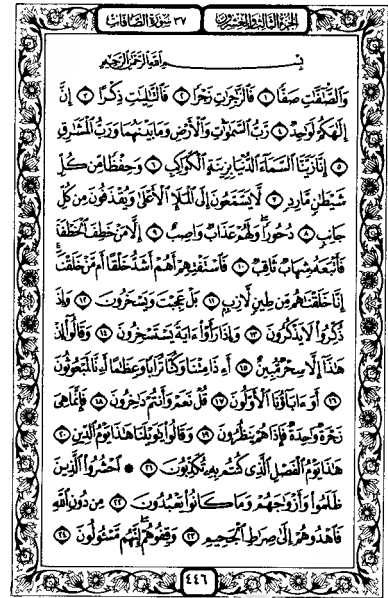 الجُزْءُ الثَّالِثُ وَالعِشْرُونَ
٣٧ سُورَةُ الصَّافَّاتِ
بِسْمِ اللَّهِ الرَّحْمَٰنِ الرَّحِيمِ
وَالصَّٰٓفَّٰتِ صَفًّا ١ فَالزَّٰجِرَٰتِ زَجْرًا ٢ فَالتَّٰلِيَٰتِ ذِكْرًا ٣ إِنَّ
إِلَٰهَكُمْ لَوَٰحِدٌ ٤ رَّبُّ السَّمَٰوَٰتِ وَالْأَرْضِ وَمَا بَيْنَهُمَا وَرَبُّ الْمَشَٰرِقِ
٥ إِنَّا زَيَّنَّا السَّمَآءَ الدُّنْيَا بِزِينَةٍ الْكَوَاكِبِ ٦ وَحِفْظًا مِّن كُلِّ
شَيْطَٰنٍ مَّارِدٍ ٧ لَّا يَسَّمَّعُونَ إِلَى الْمَلَإِ الْأَعْلَىٰ وَيُقْذَفُونَ مِن كُلِّ
جَانِبٍ ٨ دُحُورًا ۖ وَلَهُمْ عَذَابٌ وَاصِبٌ ٩ إِلَّا مَنْ خَطِفَ الْخَطْفَةَ
فَأَتْبَعَهُۥ شِهَابٌ ثَاقِبٌ ١٠ فَاسْتَفْتِهِمْ أَهُمْ أَشَدُّ خَلْقًا أَم مَّنْ خَلَقْنَآ ۚ
إِنَّا خَلَقْنَٰهُم مِّن طِينٍ لَّازِبٍ ١١ بَلْ عَجِبْتَ وَيَسْخَرُونَ ١٢ وَإِذَا
ذُكِّرُوا لَا يَذْكُرُونَ ١٣ وَإِذَا رَأَوْا ءَايَةً يَسْتَسْخِرُونَ ١٤ وَقَالُوٓا إِنْ
هَٰذَآ إِلَّا سِحْرٌ مُّبِينٌ ١٥ أَءِذَا مِتْنَا وَكُنَّا تُرَابًا وَعِظَٰمًا أَءِنَّا لَمَبْعُوثُونَ
١٦ أَوَءَابَآؤُنَا الْأَوَّلُونَ ١٧ قُلْ نَعَمْ وَأَنتُمْ دَٰخِرُونَ ١٨ فَإِنَّمَا هِيَ
زَجْرَةٌ وَٰحِدَةٌ فَإِذَا هُمْ يَنظُرُونَ ١٩ وَقَالُوا يَٰوَيْلَنَا هَٰذَا يَوْمُ الدِّينِ ٢٠
هَٰذَا يَوْمُ الْفَصْلِ الَّذِي كُنتُم بِهِۦ تُكَذِّبُونَ ٢١ ۞ احْشُرُوا الَّذِينَ
ظَلَمُوا وَأَزْوَٰجَهُمْ وَمَا كَانُوا يَعْبُدُونَ ٢٢ مِن دُونِ اللَّهِ
فَاهْدُوهُمْ إِلَىٰ صِرَٰطِ الْجَحِيمِ ٢٣ وَقِفُوهُمْ ۖ إِنَّهُم مَّسْـُٔولُونَ ٢٤
٤٤٦